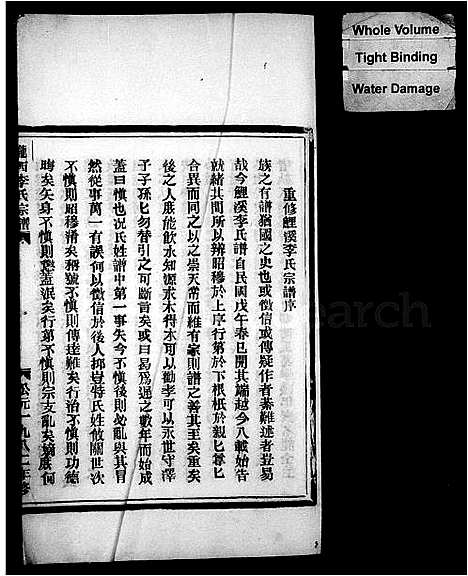 Whole Volume
Tight Binding
Water Damage
重修鯉溪李氏宗譜序
族之有譜猶國之史也或徵信或傳疑作者綦難述者豈易
哉今鯉溪李氏譜自民國戊午春已開其端越今八載始告
就緒其間所以辨昭穆於上序行第於下根柢於親匕尊匕
合異而同之以之崇天常而維有家則譜之善其至矣重矣
後之人庶能飲水知源求木得本可以勸孝可以永世守澤
子子孫匕勿替引之可斷言矣或曰易爲遲之數年而始成
蓋曰愼也况氏姓譜中第一事矣今不愼後則必亂與其冒
然從事萬一有誤何以徵信於後人抑豈特氏姓攸關世次
不愼則昭穆淆矣稱號不愼則傳達難矣行治不愼則功德
晦矣矢身不愼則懲蓋泯矣行第不愼則宗支亂矣嫡庶何
隴西李氏宗譜